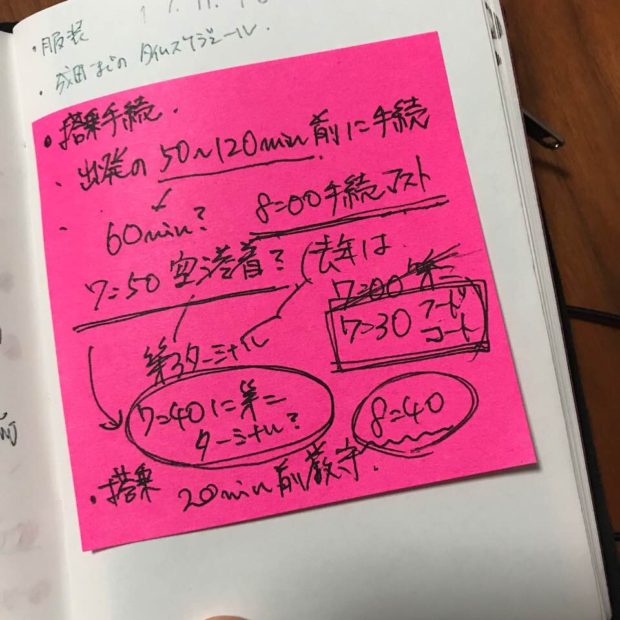 ・服装
・成田までのタイムスケジュール.
・搭乗手続.
、出発の50~120min前に手続
、60min?
8=00手続マスト
7=50空港着?
(去年は
7=00第二
7=30フード
コート
第3ターミナル
7=40に第二
ターミナル?
8=40
・搭乗 20min前厳守.